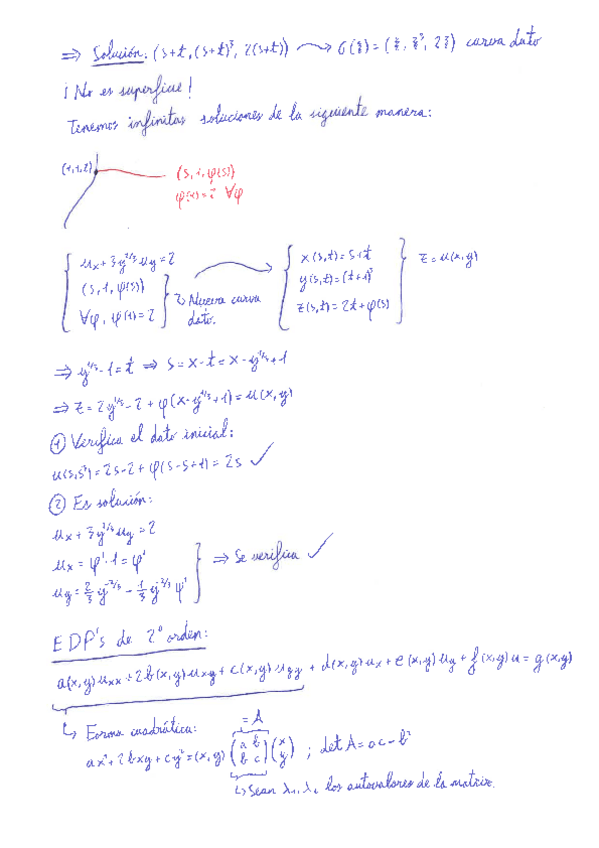 ⇒ Solución: (s+t, (s+t)³, 2(s+t)) ⟿ G(ξ) = (ξ, ξ³, 2ξ) curva dato
¡No es superficie!
Tenemos infinitas soluciones de la siguiente manera:
(1,1,2)
(s, 1, φ(s))
φ(1) = 2 ∀φ
u_x + 3y^{2/3} u_y = 2
(s, 1, φ(s))
∀φ, φ(1) = 2
Nueva curva dato.
x(s,t) = s+t
y(s,t) = (t+1)³
z(s,t) = 2t + φ(s)
z = u(x,y)
⇒ y^{1/3} - 1 = t ⇒ s = x - t = x - y^{1/3} + 1
⇒ z = 2y^{1/3} - 2 + φ(x - y^{1/3} + 1) = u(x,y)
① Verifica el dato inicial:
u(s,s³) = 2s - 2 + φ(s-s+1) = 2s ✓
② Es solución:
u_x + 3y^{2/3} u_y = 2
u_x = φ'·1 = φ'
u_y = 2/3 y^{-2/3} - 1/3 y^{-2/3} φ'
⇒ Se verifica ✓
EDP's de 2º orden:
a(x,y)u_xx + 2b(x,y)u_xy + c(x,y)u_yy + d(x,y)u_x + e(x,y)u_y + f(x,y)u = g(x,y)
↳ Forma cuadrática:
= A
ax² + 2bxy + cy² = (x,y) (a b; b c) (x; y) ; det A = ac - b²
↳ Sean λ₁, λ₂ los autovalores de la matriz.